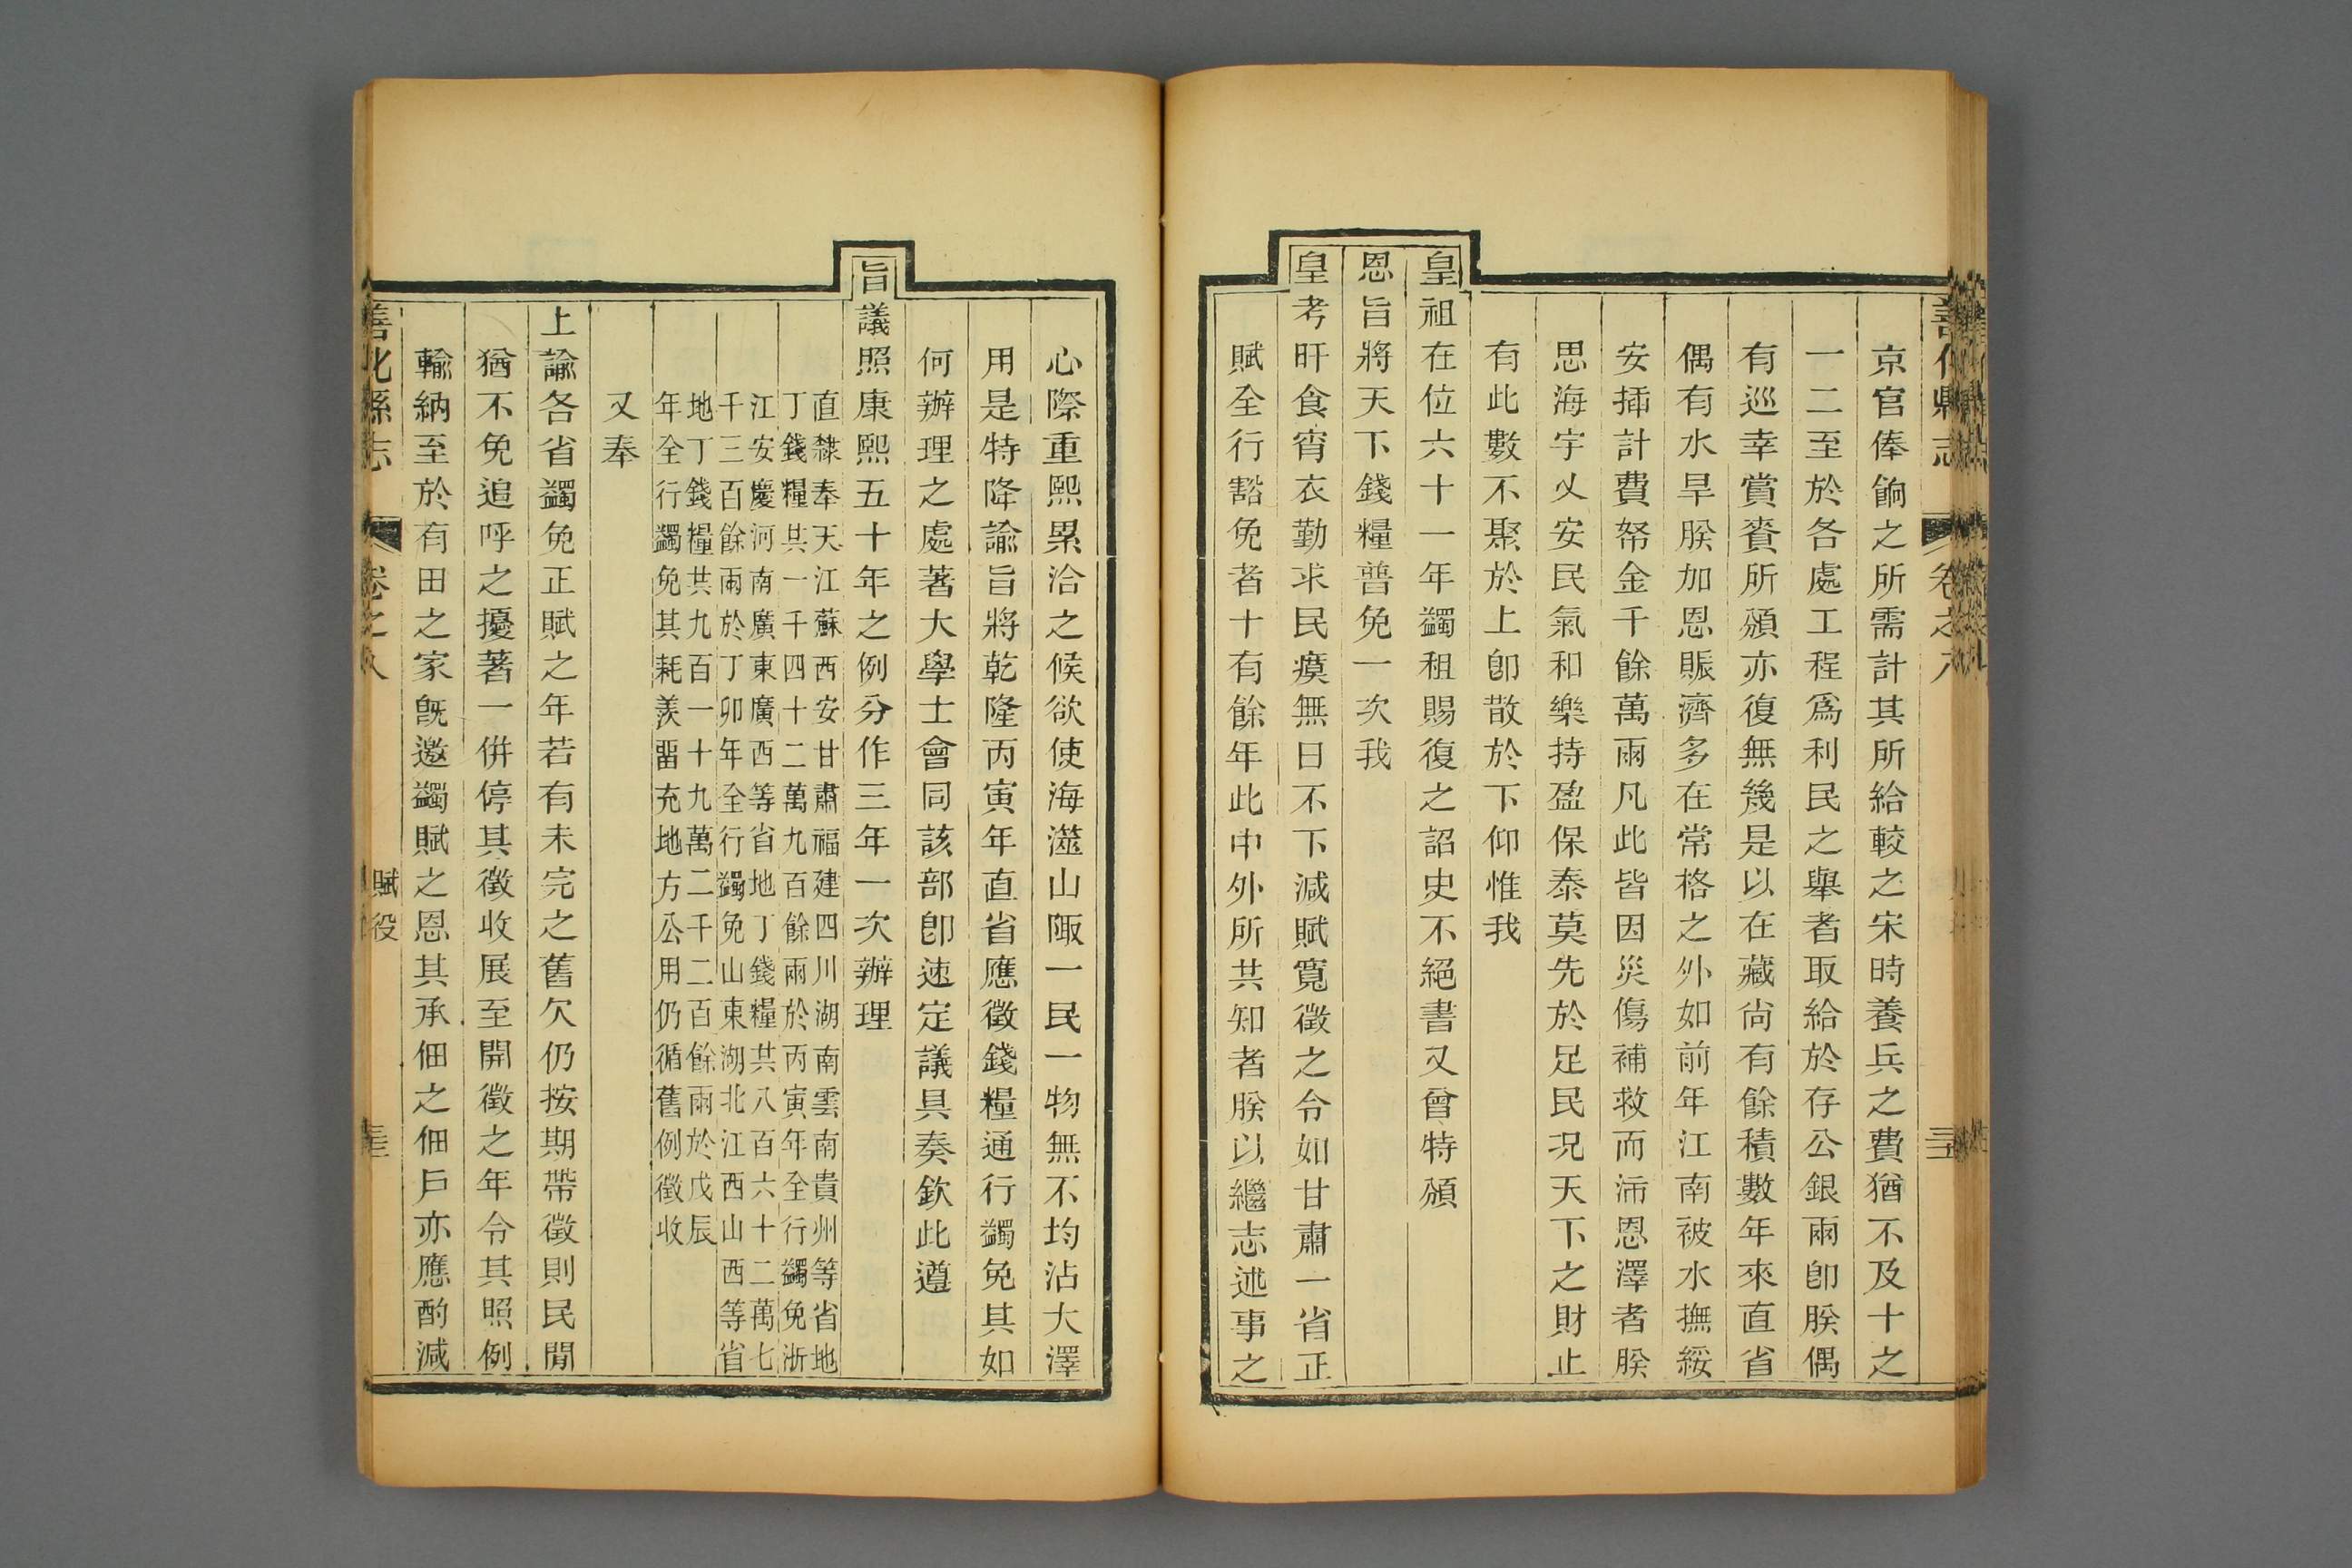 善化縣志
卷之八
京官俸餉之所需計其所給較之宋時養兵之費猶不及十之
一二至於各處工程爲利民之舉者取給於存公銀兩卽朕偶
有巡幸賞賚所頒亦復無幾是以在藏尚有餘積數年來直省
偶有水旱朕加恩賑濟多在常格之外如前年江南被水撫綏
安揷計費帑金千餘萬兩凡此皆因災傷補救而沛恩澤者朕
思海宇乂安民氣和樂持盈保泰莫先於足民况天下之財止
有此數不聚於上卽散於下仰惟我
皇祖在位六十一年蠲租賜復之詔史不絕書又曾特頒
恩旨將天下錢糧普免一次我
皇考旰食宵衣勤求民瘼無日不下減賦寬徵之令如甘肅一省正
賦全行豁免者十有餘年此中外所共知者朕以繼志述事之
心際重熙累洽之候欲使海澨山陬一民一物無不均沾大澤
用是特降諭旨將乾隆丙寅年直省應徵錢糧通行蠲免其如
何辦理之處著大學士會同該部卽速定議具奏欽此遵
旨議照康熙五十年之例分作三年一次辦理
直隸奉天江蘇西安甘肅福建四川湖南雲南貴州等省地
丁錢糧共一千四十二萬九百餘兩於丙寅年全行蠲免浙
江安慶河南廣東廣西等省地丁錢糧共八百六十二萬七
千三百餘兩於丁卯年全行蠲免山東湖北江西山西等省
地丁錢糧共九百一十九萬二千二百餘兩於戊辰
年全行蠲免其耗羨畱充地方公用仍循舊例徵收
又奉
上諭各省蠲免正賦之年若有未完之舊欠仍按期帶徵則民間
猶不免追呼之擾著一併停其徵收展至開徵之年令其照例
輸納至於有田之家旣邀蠲賦之恩其承佃之佃戶亦應酌減
善化縣志
卷之八
賦役